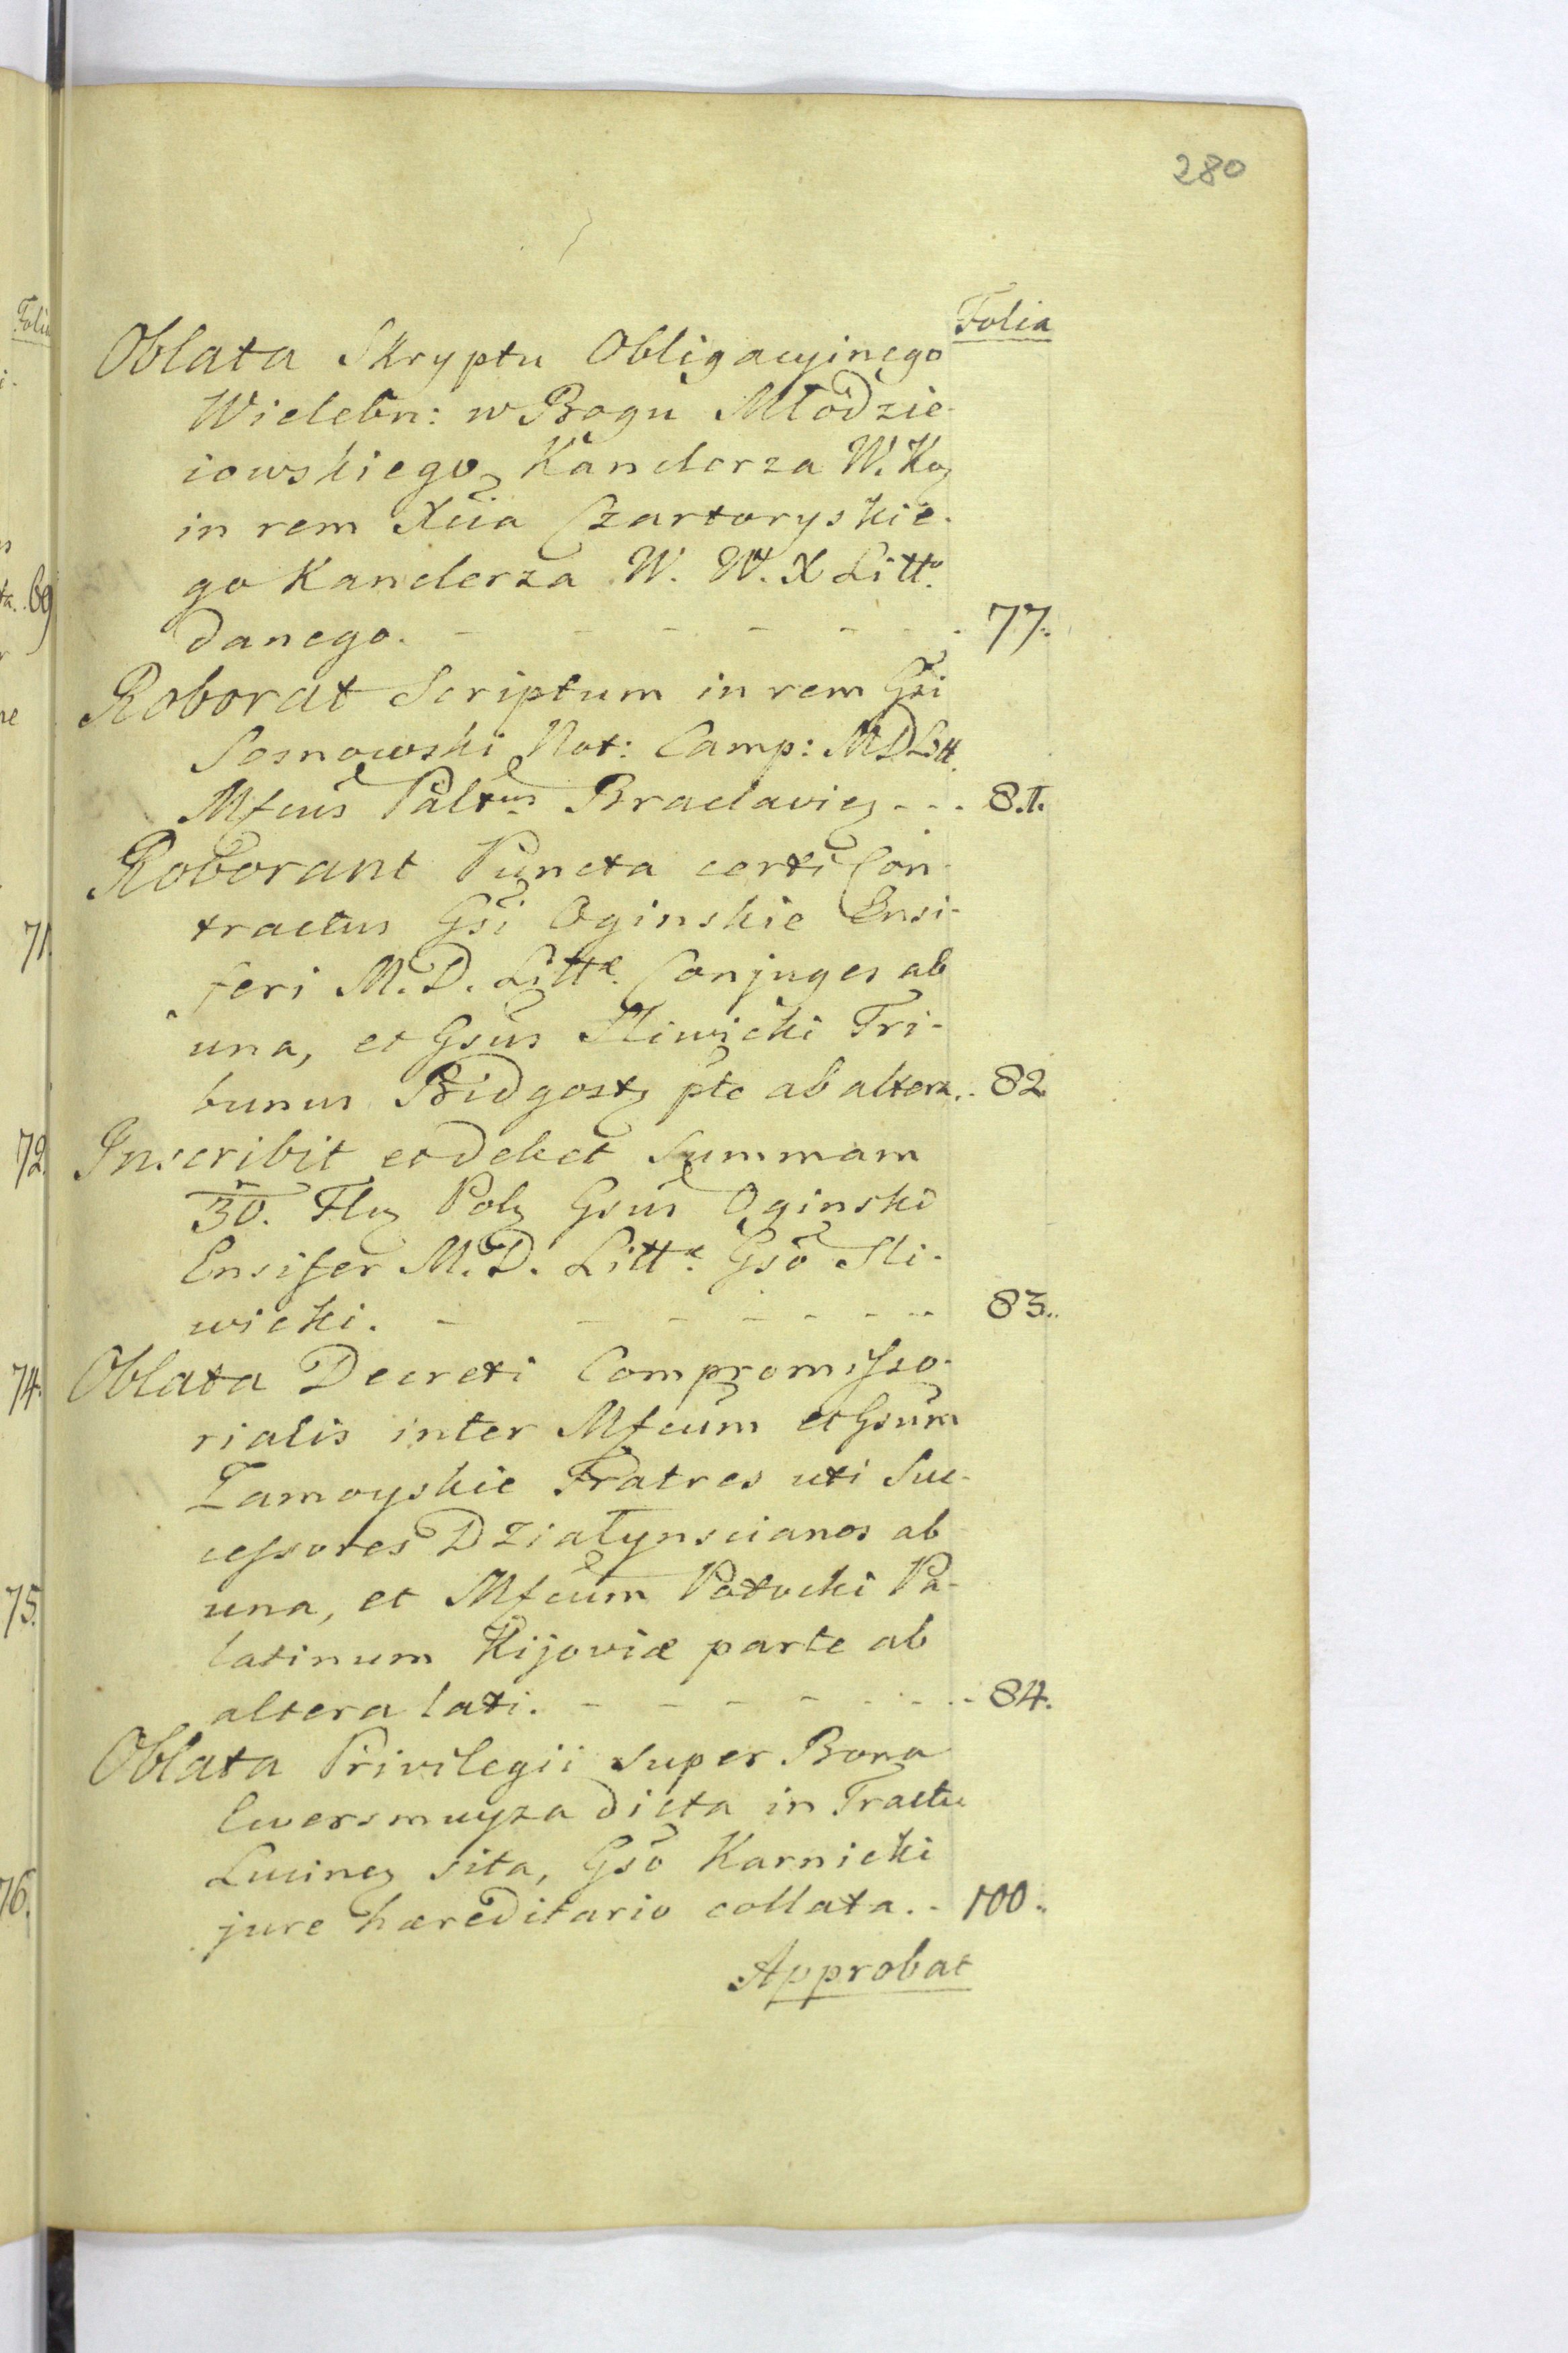 280
Folia
Oblata Skryptu Obligacyinego
Wielebn: w Bogu Młodzie-
iowskiego Kanclerza W. Ko
in rem Xcia Czartoryskie-
go Kanclerza W. W. X Litto
danego. - - - - - - - 77.
Roborat Scriptum in rem Gsi
Sosnowski Not: Camp: M D Litt.
Mfcus Paltnus Braclavien - - - 81.
Roborant Puncta certi Con-
tractus Gsi Oginskie Ensi-
feri M. D. Littæ Conjuges ab
una, et Gsus Sliwicki Tri-
bunus Bidgost pte ab altera. - 82
Inscribit et debet Summam
30. Fl Pol Gsus Oginski
Ensifer M. D. Littæ Gso Sli-
wicki. - - - - - - - - 83.
Oblata Decreti Compromisso-
rialis inter Mfcum et Gsum
Zamoyskie Fratres uti Suc-
cessores Działynscianos ab
una, et Mfcum Potocki Pa-
latinum Kijoviæ parte ab
altera lati. - - - - - - - 84.
Oblata Privilegii super Bona
Ewersmuyza dicta in Tractu
Lucinen sita, Gso Karnicki
jure hæreditario collata. - 100.
Approbat
Folia
69
71.
72.
74.
75.
76.